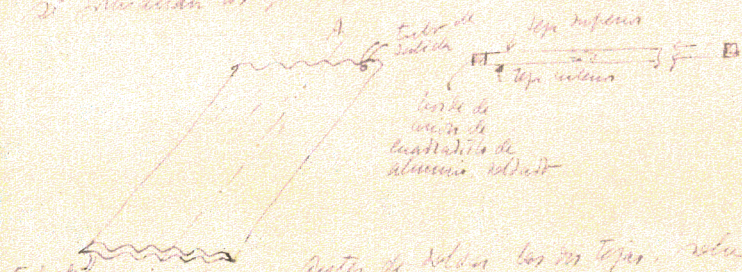 si
A
tubo de
salida
teja superior
teja inferior
borde de
unión de
cuadradillo de
aluminio soldado
Antes de soldar las dos tejas.